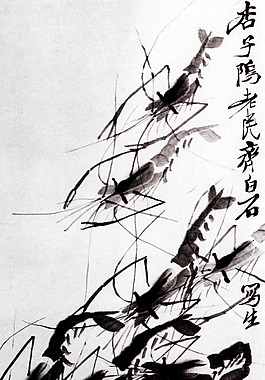 杏子隖老民齊白石
寫生